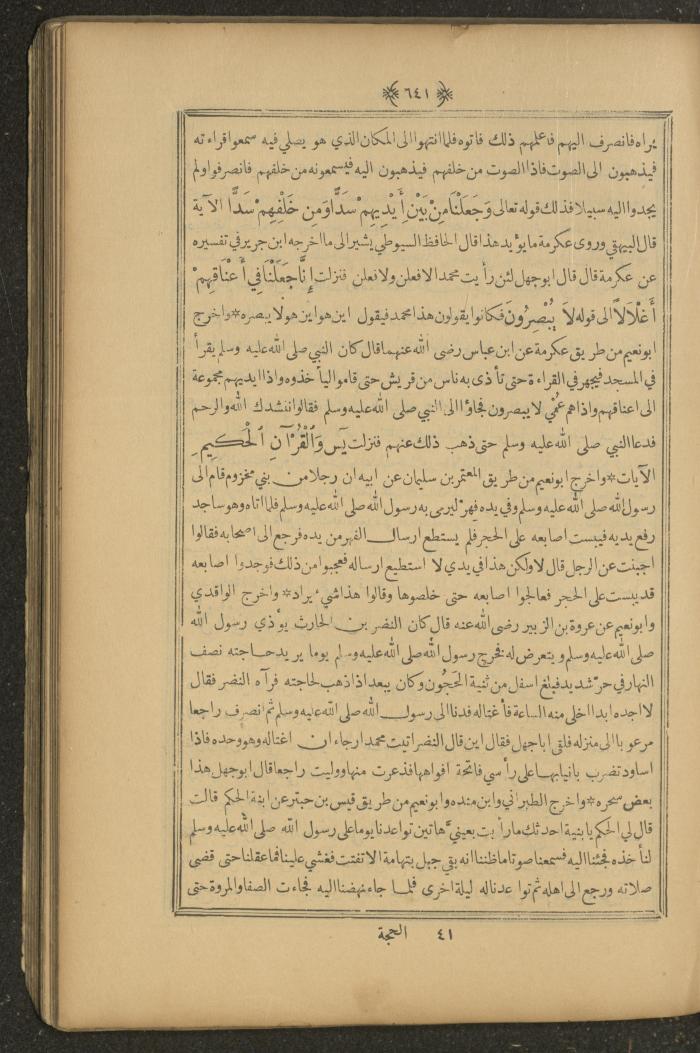 ٦٤١
يراه فانصرف اليهم فاعلمهم ذلك فاتوه فلما انتهوا الى المكان الذي هو يصلي فيه سمعوا قراءته
فيذهبون الى الصوت فاذا الصوت من خلفهم فيذهبون اليه فيسمعونه من خلفهم فانصرفوا ولم
يجدوا اليه سبيلا فذلك قوله تعالى وَجَعَلْنَا مِنْ بَيْنِ أَيْدِيهِمْ سَدًّا وَمِن خَلْفِهِمْ سَدًّا الآية
قال البيهقي وروى عكرمة ما يؤيد هذا قال الحافظ السيوطي يشير الى ما اخرجه ابن جرير في تفسيره
عن عكرمة قال قال ابو جهل لئن رأيت محمدا لافعلن ولافعلن فنزلت إِنَّا جَعَلْنَا فِي أَعْنَاقِهِمْ
أَغْلَالاً الى قوله لاَ يُبْصِرُونَ فكانوا يقولون هذا محمد فيقول اين هو اين هو لا يبصره * واخرج
ابو نعيم من طريق عكرمة عن ابن عباس رضى الله عنهما قال كان النبي صلى الله عليه وسلم يقرأ
في المسجد فيجهر في القراءة حتى تأذى به ناس من قريش حتى قاموا ليأخذوه واذا ايديهم مجموعة
الى اعناقهم واذا هم عُمْي لا يبصرون فجاؤا الى النبي صلى الله عليه وسلم فقالوا ننشدك الله والرحم
فدعا النبي صلى الله عليه وسلم حتى ذهب ذلك عنهم فنزلت يَس وَالْقُرْآنِ الْحَكِيمِ
الآيات * واخرج ابو نعيم من طريق المعتمر بن سليمان عن ابيه ان رجلا من بني مخزوم قام الى
رسول الله صلى الله عليه وسلم وفي يده فِهرٌ ليرمى به رسول الله صلى الله عليه وسلم فلما اتاه وهو ساجد
رفع يديه فيبست اصابعه على الحجر فلم يستطع ارسال الفهر من يده فرجع الى اصحابه فقالوا
اجبنت عن الرجل قال لا ولكن هذا في يدي لا استطيع ارساله فعجبوا من ذلك فوجدوا اصابعه
قد يبست على الحجر فعالجوا اصابعه حتى خلصوها وقالوا هذا شيء يراد * واخرج الواقدي
وابو نعيم عن عروة بن الزبير رضى الله عنه قال كان النضر بن الحارث يؤذي رسول الله
صلى الله عليه وسلم ويتعرض له فخرج رسول الله صلى الله عليه وسلم يوما يريد حاجته نصف
النهار في حرّ شديد فبلغ اسفل من ثنية الحَجُون وكان يبعد اذا ذهب لحاجته فرآه النضر فقال
لا اجده ابدا اخلى منه الساعة فأغتاله فدنا الى رسول الله صلى الله عليه وسلم ثم انصرف راجعا
مرعوبا الى منزله فلقى ابا جهل فقال اين قال النضر اتبعت محمدا رجاء ان اغتاله وهو وحده فاذا
اساود تضرب بانيابها على رأسي فاتحة افواهها فذعرت منها ووليت راجعا قال ابو جهل هذا
بعض سحره * واخرج الطبراني وابن منده وابو نعيم من طريق قيس بن حبتر عن ابنة الحكم قالت
قال لي الحكم يا بنية احدثك ما رأيت بعينيَّ هاتين تواعدنا يوما على رسول الله صلى الله عليه وسلم
لنأخذه فجئنا اليه فسمعنا صوتا ما ظننا انه بقي جبل بتهامة الا تفتت فغشي علينا فما عقلنا حتى قضى
صلاته ورجع الى اهله ثم تواعدنا له ليلة اخرى فلما جاء نهضنا اليه فجاءت الصفا والمروة حتى
٤١ الحجة